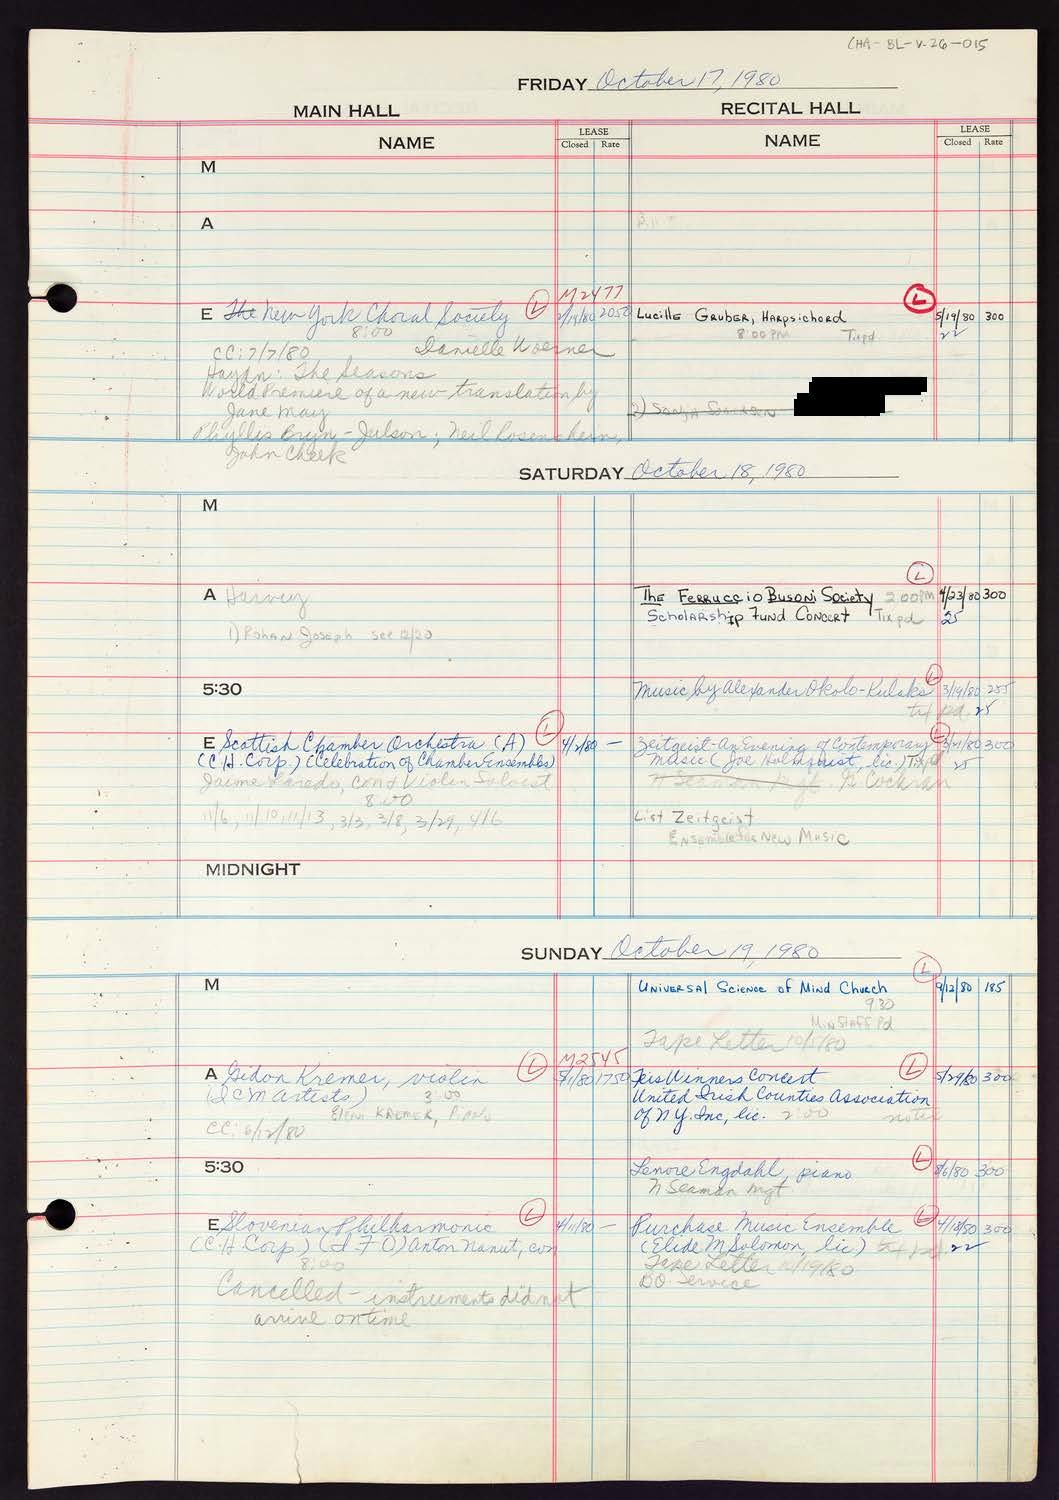 CHA-BL-V-26-015
FRIDAY October 17, 1980
MAIN HALL
RECITAL HALL
NAME
LEASE
Closed Rate
NAME
LEASE
Closed Rate
M
A
M2477
E The New York Choral Society L 2/19/80 2050
8:00
CC: 7/7/80 Danielle Woerner
Haydn: The Seasons
World Premiere of a new translation by
Jane May
Phyllis Bryn-Julson; Neil Rosenshein,
John Cheek
L
Lucille Gruber, Harpsichord 5/19/80 300
8:00 PM Tix pd. 22
2)
SATURDAY October 18, 1980
M
A Harvey
1) Rohan Joseph see 12/20
L
The Ferruccio Busoni Society 2:00 PM 4/23/80 300
Scholarship Fund Concert Tix pd 25
5:30
Music by Alexander Okolo-Kulaks L 3/19/80 255
tix pd. 25
E Scottish Chamber Orchestra (A) L 4/2/80 —
(C.H. Corp.) (Celebration of Chamber Ensembles)
Jaime Laredo, cond & Violin Soloist
8:00
11/6, 11/10, 11/13, 3/3, 3/8, 3/29, 4/6
Zeitgeist-An Evening of Contemporary L 300
Music (Joe Holmquist, lic.) Tix pd 25
N Seaman Mgt. Cochran
List Zeitgeist
Ensemble for New Music
MIDNIGHT
SUNDAY October 19, 1980
M
L
Universal Science of Mind Church 9/12/80 185
9:30
Min Staff Pd
Tape Letter 10/5/80
M2545
A Gidon Kremer, violin L 5/1/80 1750
(ICM Artists) 3:00
Elena Kremer, Piano
CC: 6/12/80
Feis Winners Concert L 5/29/80 300
United Irish Counties Association
of N.Y. Inc, lic. 2:00 notix
5:30
Lenore Engdahl, piano L 8/6/80 300
N Seaman mgt
E Slovenian Philharmonic L 4/11/80 —
(C.H. Corp.) (I F O) Anton Nanut, con
8:00
Cancelled - instruments did not
arrive on time
Purchase Music Ensemble L 4/18/80 300
(Elide M Solomon, lic) tix pd. 22
Tape Letter 10/19/80
DO Service